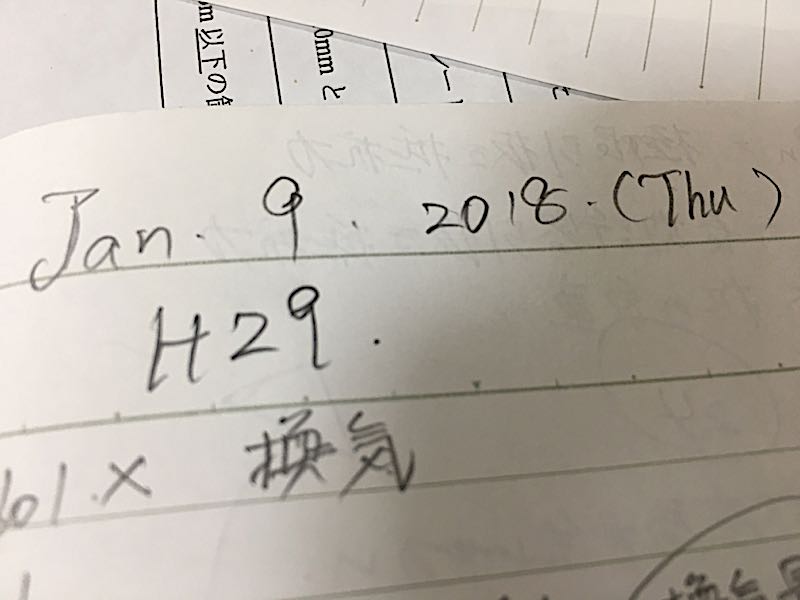 m以下の
0mm と
Jan. 9. 2018. (Thu)
H29.
101.× 換気
換気量